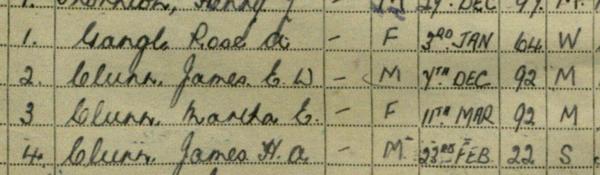 1. Thornton, Henry J M 29. DEC 97. M.
1. Gangle Rose A - F 3RD JAN 64 W
2. Clunn. James. C. W - M 7TH DEC 92 M
3 Clunn. Martha E. - F 11TH MAR 92 M
4. Clunn James H. A - M 23RD FEB 22 S